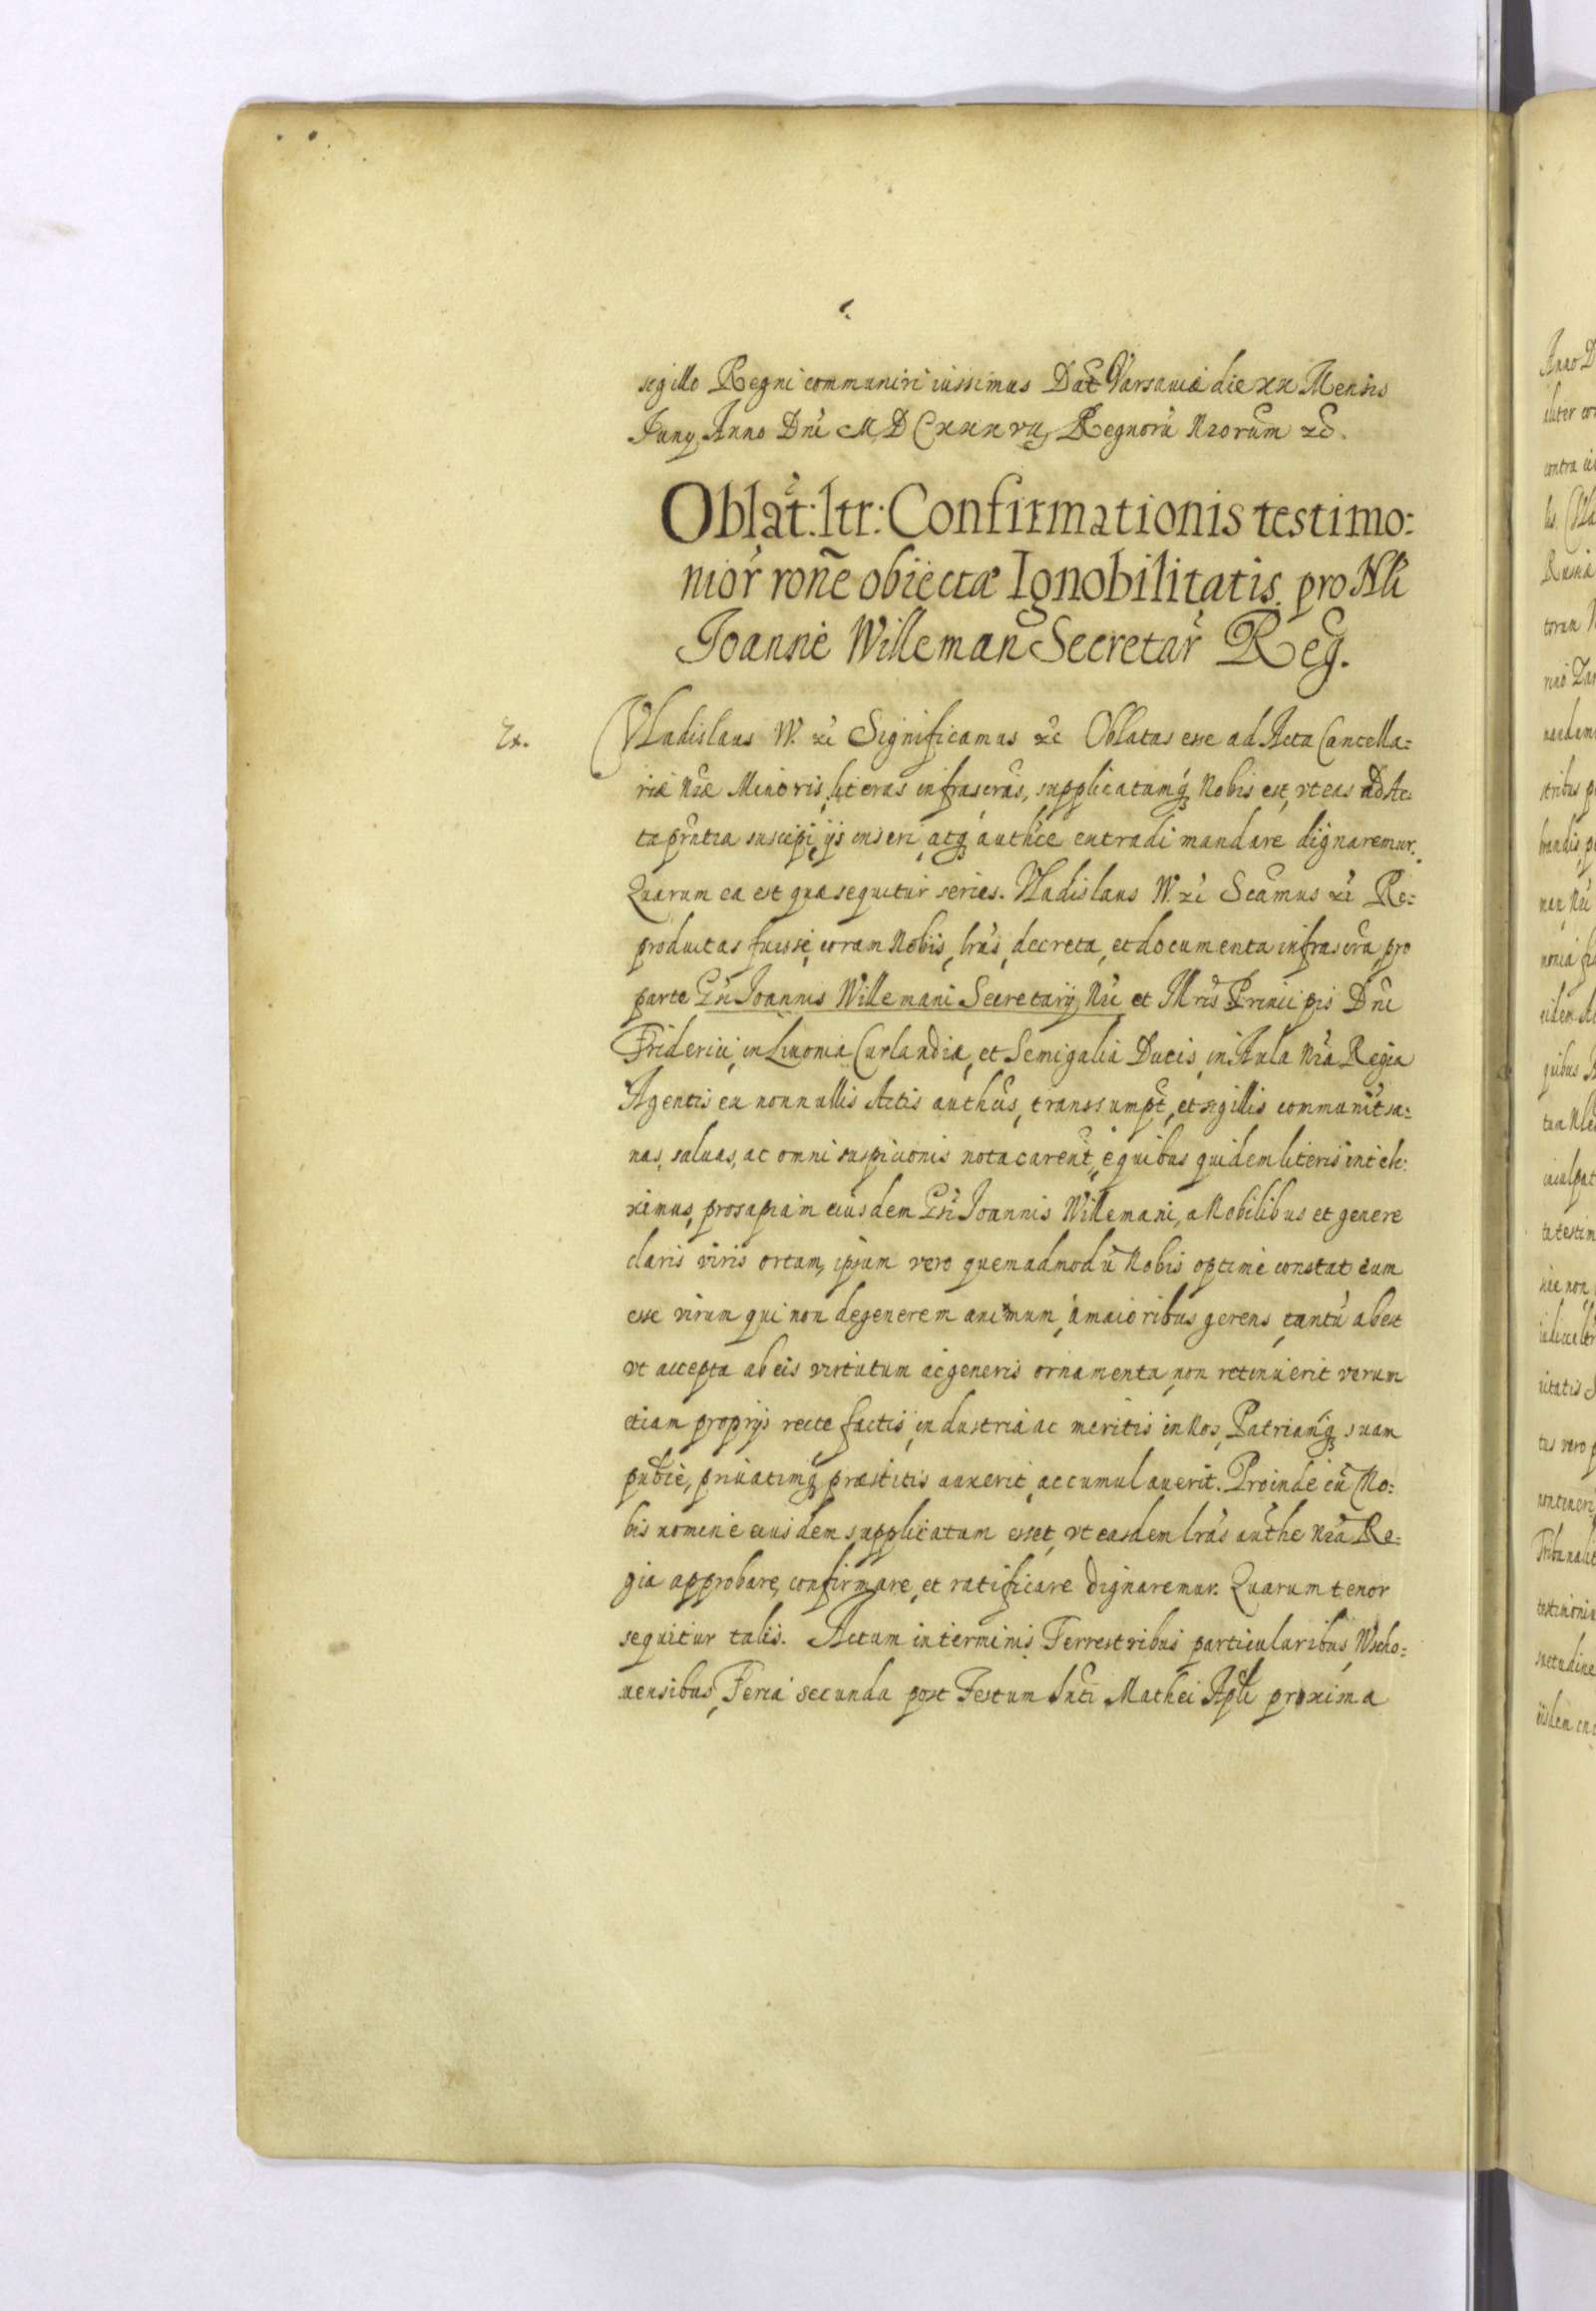 sigillo Regni communiri iussimus Dat Varsauiæ die xx Mensis
Iuny Anno Dni MDCxxxvii, Regnorũ Nrorum xc.
Oblat: ltr: Confirmationis testimo:
nior rone obiectæ Ignobilitatis pro Nli
Joanne Willeman Secretar Reg.
Ex.
Vladislaus IV. xc Significamus xc Oblatas esse ad Acta Cancella=
riæ Nræ Minoris, literas infrascras, supplicatumq Nobis est, vt eas ad Ac
ta prñtia suscipi, ijs inseri, atq authce extradi mandare dignaremur.
Quarum ea est quæ sequitur series. Vladislaus IV. xc Scamus xc Re=
productas fuisse, coram Nobis, lras, decreta, et documenta infrascra, pro
parte Gn Joannis Willemani Secretarij Nri et Illris Principis Dni
Friderici, in Liuonia Curlandiæ, et Semigaliæ Ducis, in Aula Nra Regia
Agentis ex nonnullis Actis authcis, transsumpt, et sigillis communit sa=
nas, saluas, ac omni suspicionis nota carent, è quibus quidem literis intele:
ximus, prosapiam eiusdem Gn Joannis Willemani, a Nobilibus et genere
claris viris ortam, ipsum vero quemadmodũ Nobis optime constat eum
esse virum qui non degenerem animum, à maioribus gerens, tantũ abest
vt accepta ab eis virtutum ac generis ornamenta, non retinuerit verum
etiam proprijs recte factis, industria ac meritis in Nos, Patriamq suam
publce, priuatimq præstitis auxerit, accumulauerit. Proinde cũ No:
bis nomine eiusdem supplicatum esset, vt easdem lras authe Nra Re=
gia approbare, confirmare, et ratificare dignaremur. Quarum tenor
sequitur talis. Actum in terminis Terrestribus particularibus Wscho=
uensibus, Feria secunda post Festum Sncti Mathei Apli proxima